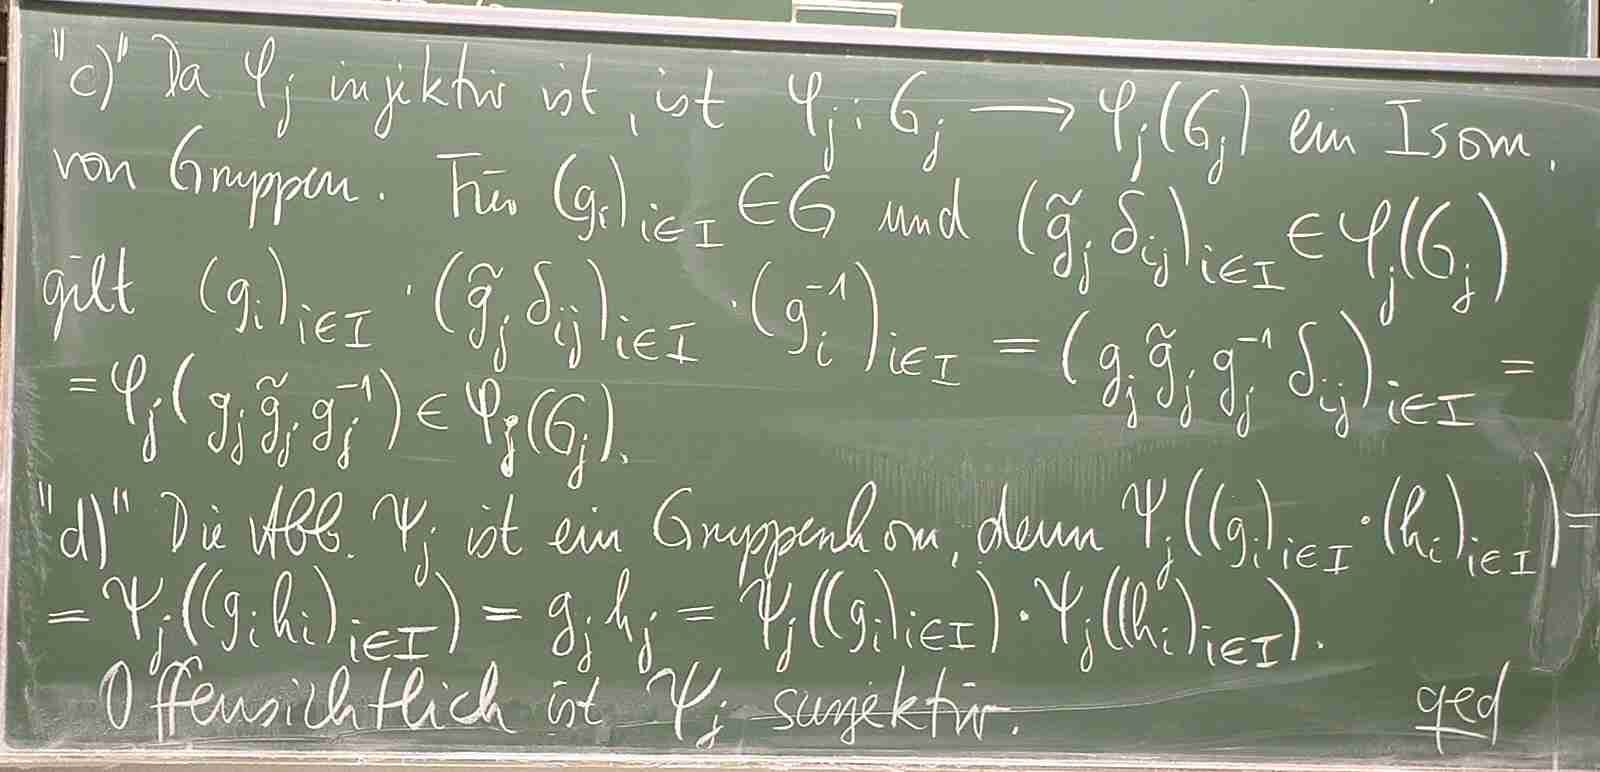 "c)" Da φ_j injektiv ist, ist φ_j : G_j ⟶ φ_j(G_j) ein Isom.
von Gruppen. Für (g_i)_{i∈I} ∈ G und (g̃_j δ_{ij})_{i∈I} ∈ φ_j(G_j)
gilt (g_i)_{i∈I} · (g̃_j δ_{ij})_{i∈I} · (g_i^{-1})_{i∈I} = (g_j g̃_j g_j^{-1} δ_{ij})_{i∈I} =
= φ_j(g_j g̃_j g_j^{-1}) ∈ φ_j(G_j).
"d)" Die Abb. ψ_j ist ein Gruppenhom, denn ψ_j((g_i)_{i∈I} · (h_i)_{i∈I}) =
= ψ_j((g_i h_i)_{i∈I}) = g_j h_j = ψ_j((g_i)_{i∈I}) · ψ_j((h_i)_{i∈I}).
Offensichtlich ist ψ_j surjektiv. qed